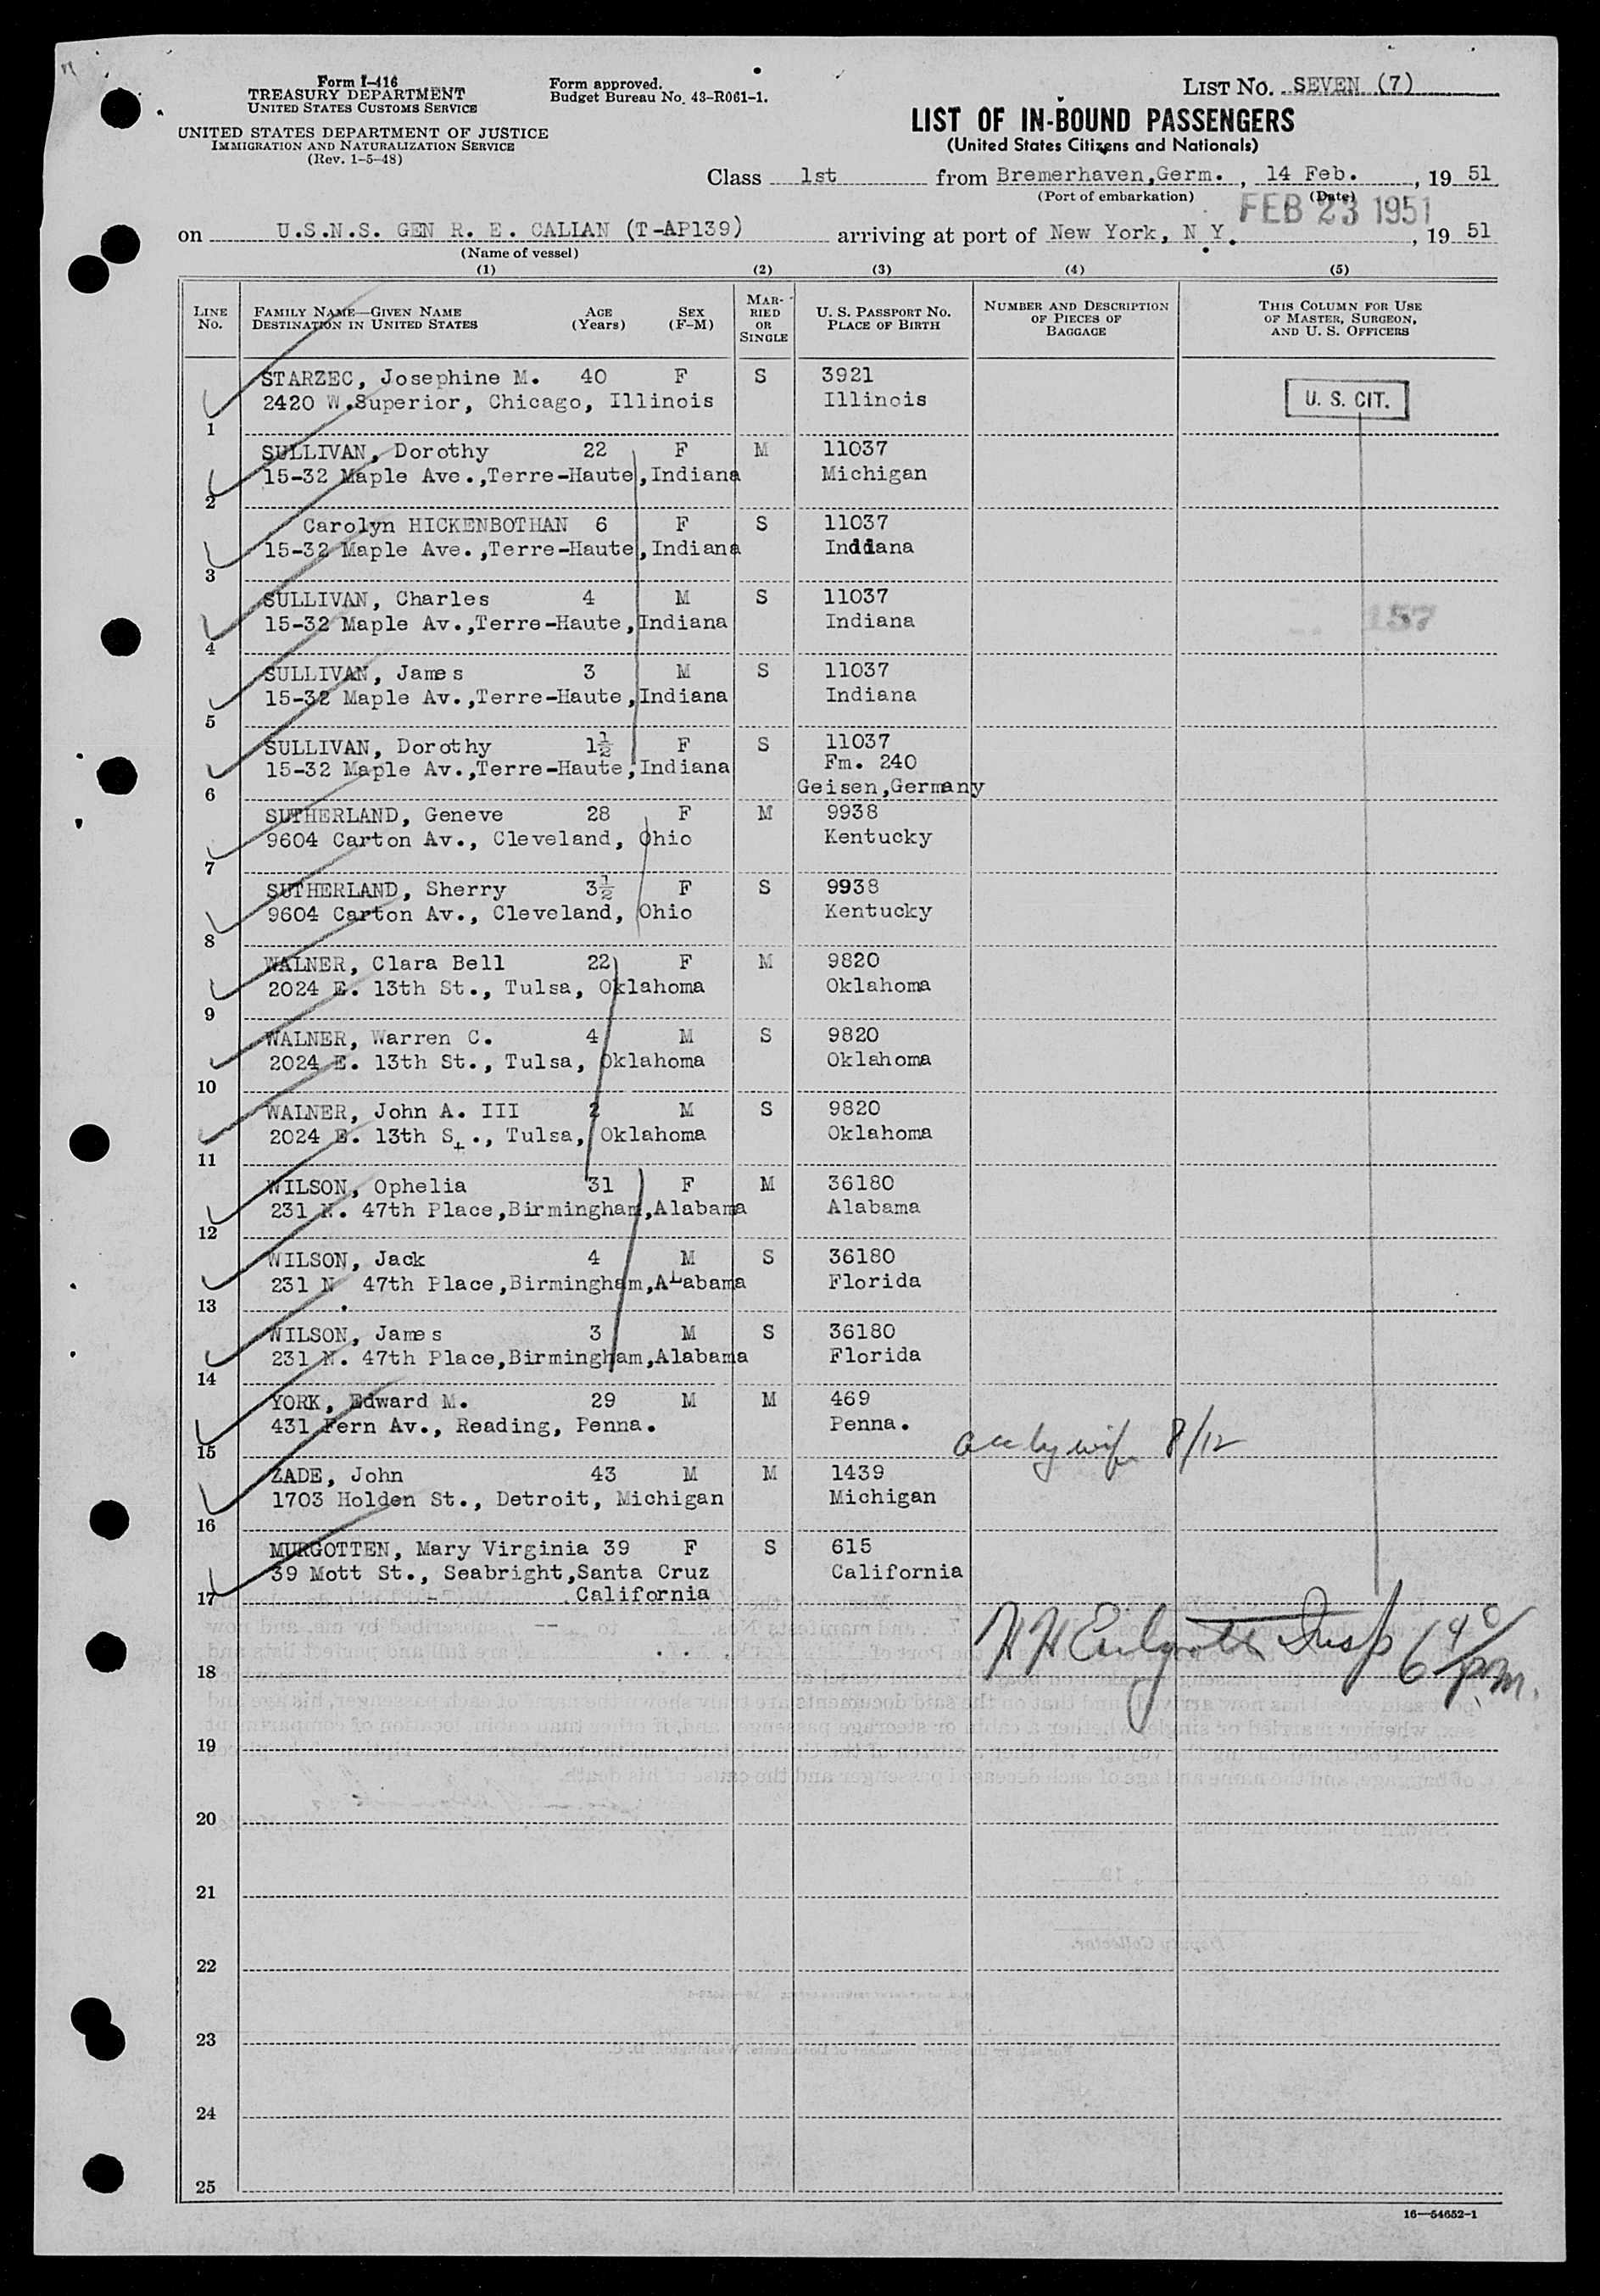 Form I-416
TREASURY DEPARTMENT
UNITED STATES CUSTOMS SERVICE
UNITED STATES DEPARTMENT OF JUSTICE
IMMIGRATION AND NATURALIZATION SERVICE
(Rev. 1-5-48)
Form approved.
Budget Bureau No. 43-R061-1.
LIST NO. SEVEN (7)
LIST OF IN-BOUND PASSENGERS
(United States Citizens and Nationals)
Class 1st from Bremerhaven,Germ., 14 Feb., 19 51
(Port of embarkation) (Date)
FEB 23 1951
on U.S.N.S. GEN R. E. CALLAN (T-AP139) arriving at port of New York, N Y., 19 51
(Name of vessel)
(1) (2) (3) (4) (5)
LINE NO. FAMILY NAME—GIVEN NAME DESTINATION IN UNITED STATES AGE (YEARS) SEX (F-M) MARRIED OR SINGLE U. S. PASSPORT NO. PLACE OF BIRTH NUMBER AND DESCRIPTION OF PIECES OF BAGGAGE THIS COLUMN FOR USE OF MASTER, SURGEON, AND U. S. OFFICERS
STARZEC, Josephine M. 40 F S 3921
2420 W.Superior, Chicago, Illinois Illinois U. S. CIT.
1
SULLIVAN, Dorothy 22 F M 11037
15-32 Maple Ave.,Terre-Haute,Indiana Michigan
2
Carolyn HICKENBOTHAN 6 F S 11037
15-32 Maple Ave.,Terre-Haute,Indiana Indiana
3
SULLIVAN, Charles 4 M S 11037
15-32 Maple Av.,Terre-Haute,Indiana Indiana 157
4
SULLIVAN, James 3 M S 11037
15-32 Maple Av.,Terre-Haute,Indiana Indiana
5
SULLIVAN, Dorothy 1½ F S 11037
15-32 Maple Av.,Terre-Haute,Indiana Fm. 240
6 Geisen,Germany
SUTHERLAND, Geneve 28 F M 9938
9604 Carton Av., Cleveland, Ohio Kentucky
7
SUTHERLAND, Sherry 3½ F S 9938
9604 Carton Av., Cleveland, Ohio Kentucky
8
WALNER, Clara Bell 22 F M 9820
2024 E. 13th St., Tulsa, Oklahoma Oklahoma
9
WALNER, Warren C. 4 M S 9820
2024 E. 13th St., Tulsa, Oklahoma Oklahoma
10
WALNER, John A. III 2 M S 9820
2024 E. 13th St., Tulsa, Oklahoma Oklahoma
11
WILSON, Ophelia 31 F M 36180
231 N. 47th Place,Birmingham,Alabama Alabama
12
WILSON, Jack 4 M S 36180
231 N. 47th Place,Birmingham,Alabama Florida
13
WILSON, James 3 M S 36180
231 N. 47th Place,Birmingham,Alabama Florida
14
YORK, Edward M. 29 M M 469
431 Fern Av., Reading, Penna. Penna.
15 8/12
ZADE, John 43 M M 1439
1703 Holden St., Detroit, Michigan Michigan
16
MURGOTTEN, Mary Virginia 39 F S 615
39 Mott St., Seabright,Santa Cruz California
17 California
18 Insp 6 40 pm.
19
20
21
22
23
24
25
16—54652-1